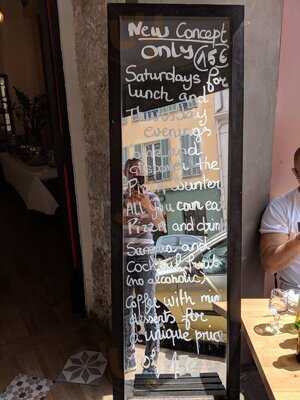 New Concept
only 15€
Saturdays for
lunch and
Thursday
evenings
and
the
Pizza counter
All you can eat
Pizza and drin
Sangria and
cocktail fruits
(no alcoholic)
coffee with mini
desserts for
a unique price
15€